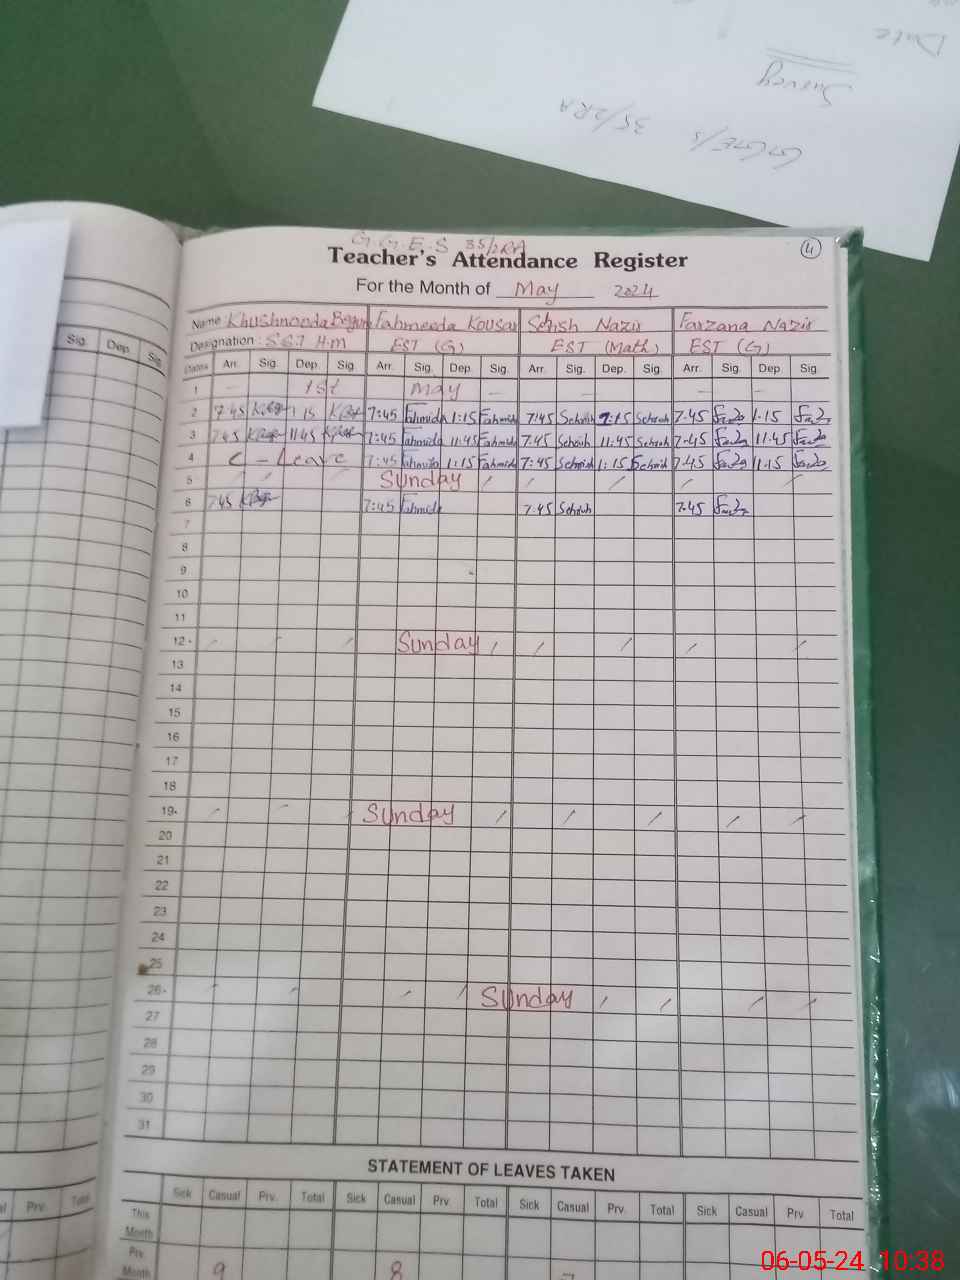 Date
Survey
GGE/s 35/2RA
G.G.E.S 35/2RA
4
Teacher's Attendance Register
For the Month of May 2024
Name: Khushnooda Begum Fahmeeda Kousar Sehrish Nazir Farzana Nazir
Designation: S.S.T H.M EST (G) EST (Math) EST (G)
Dates Arr. Sig. Dep. Sig. Arr. Sig. Dep. Sig. Arr. Sig. Dep. Sig. Arr. Sig. Dep. Sig.
1 1st May
2 7:45 1:15 7:45 Fahmida 1:15 Fahmida 7:45 1:15 7:45 1:15
3 7:45 11:45 7:45 Fahmida 11:45 Fahmida 7:45 11:45 7:45 11:45
4 C - Leave 7:45 Fahmida 1:15 Fahmida 7:45 1:15 7:45 1:15
5 Sunday
6 7:45 7:45 Fahmida 7:45 7:45
7
8
9
10
11
12 Sunday
13
14
15
16
17
18
19 Sunday
20
21
22
23
24
25
26 Sunday
27
28
29
30
31
STATEMENT OF LEAVES TAKEN
Sick Casual Prv. Total Sick Casual Prv. Total Sick Casual Prv. Total Sick Casual Prv Total
This Month
Prv. Month 9 8 7
Sig. Dep. Sig.
Prv. Total
06-05-24 10:38